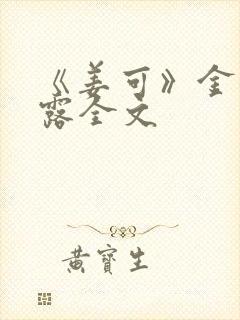 《姜可》金
露全文
黄寶生